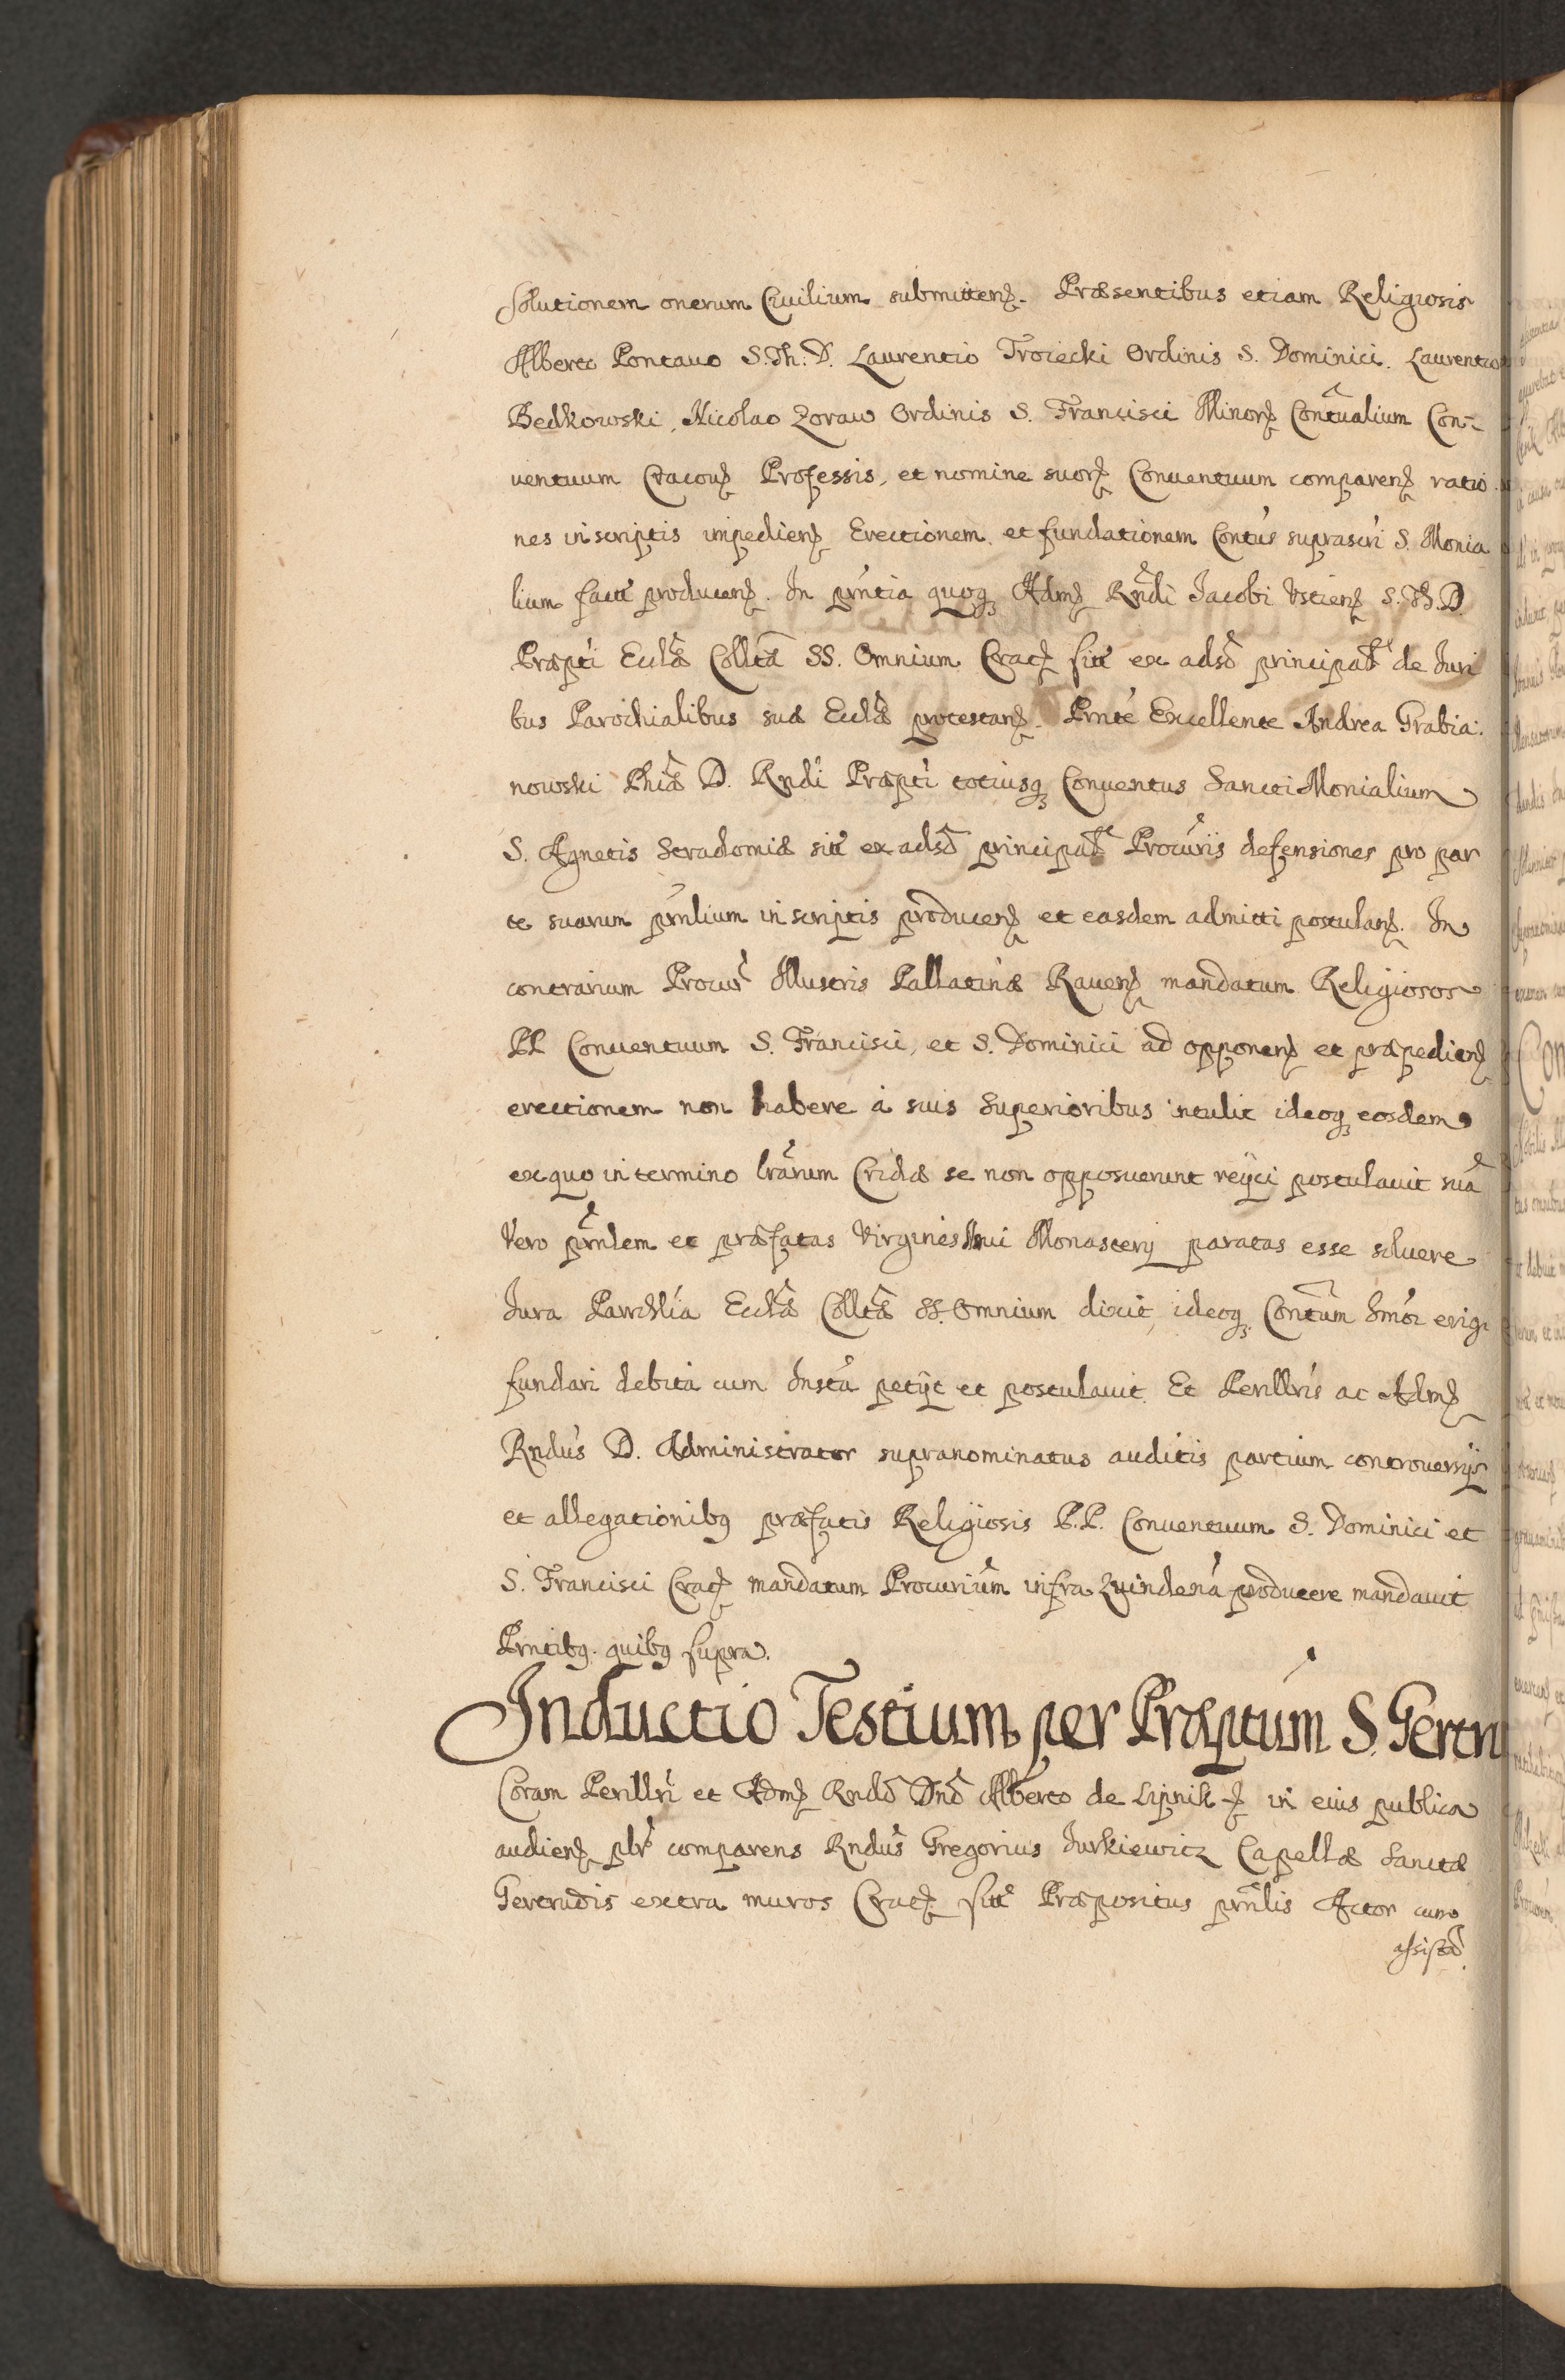 Solutionem onerum Ciuilium submitten. Præsentibus etiam Religiosis
Alberto Pontano S. Th. D. Laurentio Troiecki Ordinis S. Dominici. Laurentio
Bedkowski, Nicolao Zoraw Ordinis S. Francisci Minor Contualium Con-
uentuum Cracou Professis, et nomine suor Conuentuum comparen ratio
nes in scriptis impedien Erectionem et fundationem Contus suprascri S. Monia
lium facti producen. In pntia quoq Adm Rndi Jacobi Vstien S. Th. D.
Præpti Eccla Collta SS. Omnium Crac sui ex adso principal de Juri
bus Parochialibus suæ Eccla protestan. Pnte Excellente Andrea Grabia:
nowski Phiæ D. Rndi Præpti totiusq Conuentus Sancti Monialium
S. Agnetis Stradomiæ siti ex adso principal Procuris defensiones pro par
te suarum prnlium in scriptis producen et easdem admitti postulan. In
contrarium Procur Illustris Pallatinæ Rauen mandatum Religiosos
PP Conuentuum S. Francisci, et S. Dominici ad opponen et præpedien
erectionem non habere a suis Superioribus intulit ideoq eosdem
ex quo in termino lrarum Cridæ se non opposuerunt reijci postulauit sua
Vero prnlem et præfatas Virgines sui Monasterij paratas esse soluere
Jura Parchlia Eccla Collta SS. Omnium dixit, ideoq Contum erigi
fundari debita cum Insta petijt et postulauit. Et Perillris ac Adm
Rndus D. Administrator supranominatus auditis partium controuersijs
et allegationibq præfatis Religiosis P.P. Conuentuum S. Dominici et
S. Francisci Crac mandatum Procurium infra Quindena producere mandauit
Prntibq. quibq supra.
Inductio Testium per Præptum S. Gertru
Coram Perillri et Adm Rndo Dno Alberto de Lipnik in eius publica
audien plr comparens Rndus Gregorius Jurkiewicz Capellæ Sanctæ
Gertrudis extra muros Crac siti Præpositus prnlis Actor cum
assista